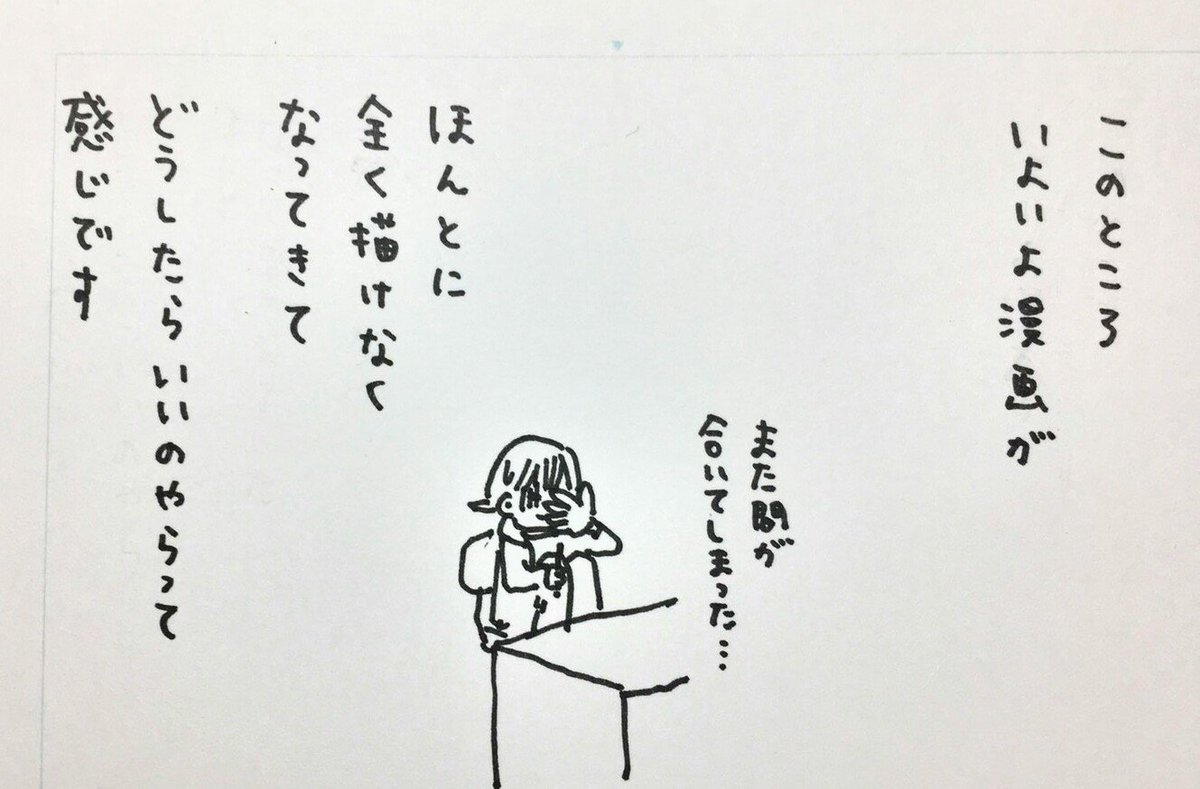 このところ
いよいよ漫画が
また間が
合いてしまった…
ほんとに
全く描けなく
なってきて
どうしたらいいのやらって
感じです